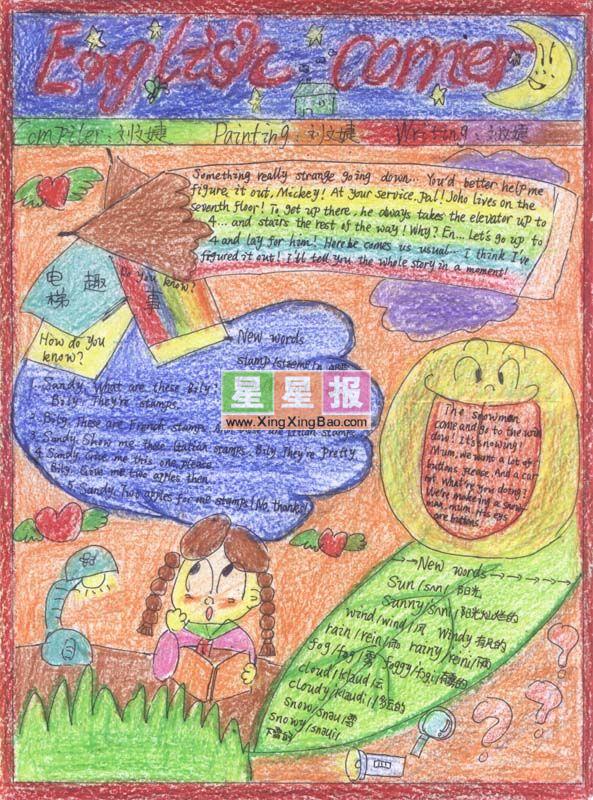 English corner
Compiler: 刘文婕 Painting: 刘文婕 Writing:
Something really strange going down... You'd better help me
figure it out, Mickey! At your service, Pal! Joho lives on the
seventh floor! To get up there, he always takes the elevator up to
4... and stairs the rest of the way! Why? En... Let's go up to
4 and lay for him! Here he comes us usual... I think I've
figured it out! I'll tell you the whole story in a moment!
电 趣
梯 事
Do you know?
How do you
know?
New words
1. Sandy. What are these Bily?
Bily. They're stamps.
2. Bily. These are French stamps. And these are Italian stamps.
3. Sandy. Show me these Italian stamps. Bily. They're Pretty
4. Sandy. Give me this one, please.
Bily. Give me two apples then...
5. Sandy. Two apples for one stamps! No, thanks!
星星报
www.XingXingBao.com
The snowman
come and go to the win
dow! It's snowing!
Mum, we want a lot of
buttons, please. And a car
rot. What're you doing?
We're making a snow-
man, mum. His eyes
are buttons.
New words
Sun /sʌn/ 阳光
Sunny /sʌni/ 阳光灿烂的
wind /wind/ 风 Windy 有风的
rain /rein/ 雨 rainy /reini/ 雨
fog /fɒg/ 雾 foggy /fɒgi/ 雾的
cloud /klaud/ 云
cloudy /klaudi/ 多云的
snow /snəu/ 雪
snowy /snəui/
下雪的